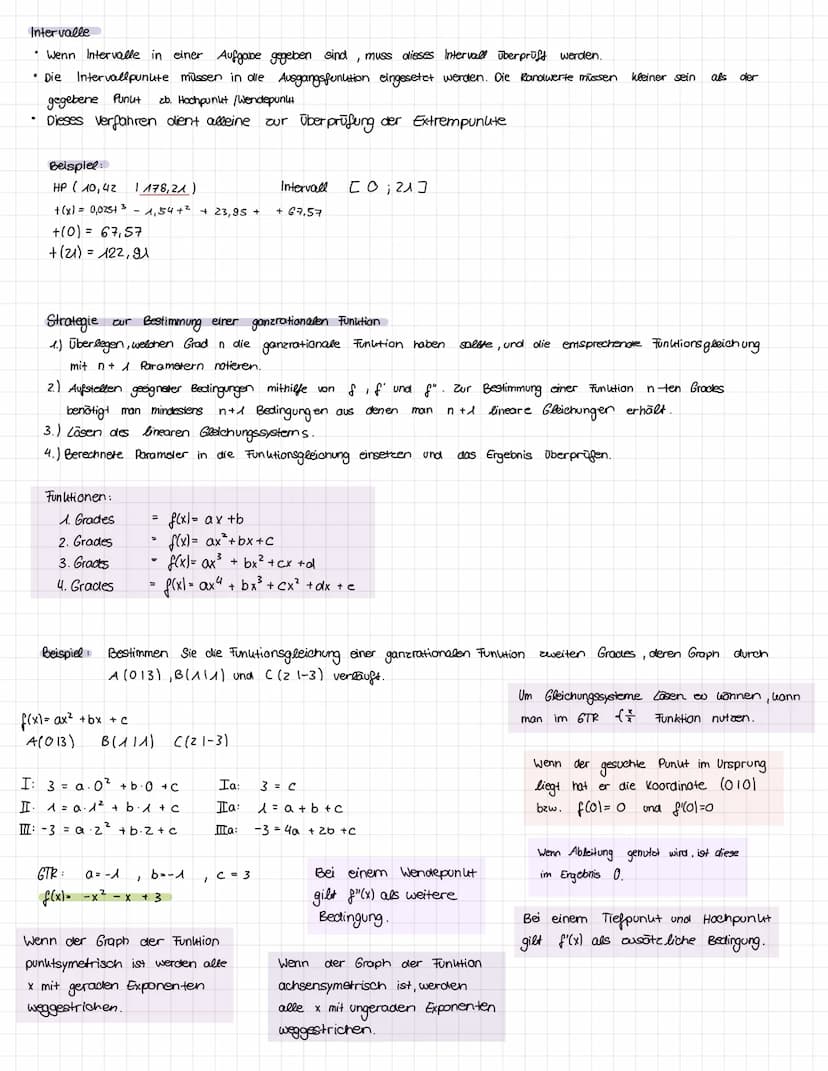 Intervalle
• Wenn Intervalle in einer Aufgabe gegeben sind, muss dieses Intervall überprüft werden.
• Die Intervallpunkte müssen in die Ausgangsfunktion eingesetzt werden. Die Randwerte müssen kleiner sein als der
gegebene Punkt zb. Hochpunkt/Wendepunkt
• Dieses Verfahren dient alleine zur Überprüfung der Extrempunkte
Beispiel:
HP (10,42 | 178,21) Intervall [0 ; 21]
f(x) = 0,025t³ - 1,54t² + 23,95t + 67,57
f(0) = 67,57
f(21) = 122,91
Strategie zur Bestimmung einer ganzrationalen Funktion
1.) Überlegen, welchen Grad n die ganzrationale Funktion haben sollte, und die entsprechende Funktionsgleichung
mit n + 1 Parametern notieren.
2.) Aufstellen geeigneter Bedingungen mithilfe von f, f' und f". Zur Bestimmung einer Funktion n-ten Grades
benötigt man mindestens n+1 Bedingungen aus denen man n+1 lineare Gleichungen erhält.
3.) Lösen des linearen Gleichungssystems.
4.) Berechnete Parameter in die Funktionsgleichung einsetzen und das Ergebnis überprüfen.
Funktionen:
1. Grades = f(x) = ax + b
2. Grades = f(x) = ax² + bx + c
3. Grades = f(x) = ax³ + bx² + cx + d
4. Grades = f(x) = ax⁴ + bx³ + cx² + dx + e
Beispiel: Bestimmen Sie die Funktionsgleichung einer ganzrationalen Funktion zweiten Grades, deren Graph durch
A(0|3), B(1|1) und C(2|-3) verläuft.
Um Gleichungssysteme lösen zu können, kann
man im GTR Funktion nutzen.
f(x) = ax² + bx + c
A(0|3) B(1|1) C(2|-3)
Wenn der gesuchte Punkt im Ursprung
liegt hat er die Koordinate (0|0)
bzw. f(0) = 0 und f'(0) = 0
I: 3 = a·0² + b·0 + c Ia: 3 = c
II: 1 = a·1² + b·1 + c IIa: 1 = a + b + c
III: -3 = a·2² + b·2 + c IIIa: -3 = 4a + 2b + c
Wenn Ableitung genutzt wird, ist diese
im Ergebnis 0.
GTR: a = -1 , b = -1 , c = 3
f(x) = -x² - x + 3
Bei einem Wendepunkt
gilt f"(x) als weitere
Bedingung.
Bei einem Tiefpunkt und Hochpunkt
gilt f'(x) als zusätzliche Bedingung.
Wenn der Graph der Funktion
punktsymetrisch ist werden alle
x mit geraden Exponenten
weggestrichen.
Wenn der Graph der Funktion
achsensymetrisch ist, werden
alle x mit ungeraden Exponenten
weggestrichen.